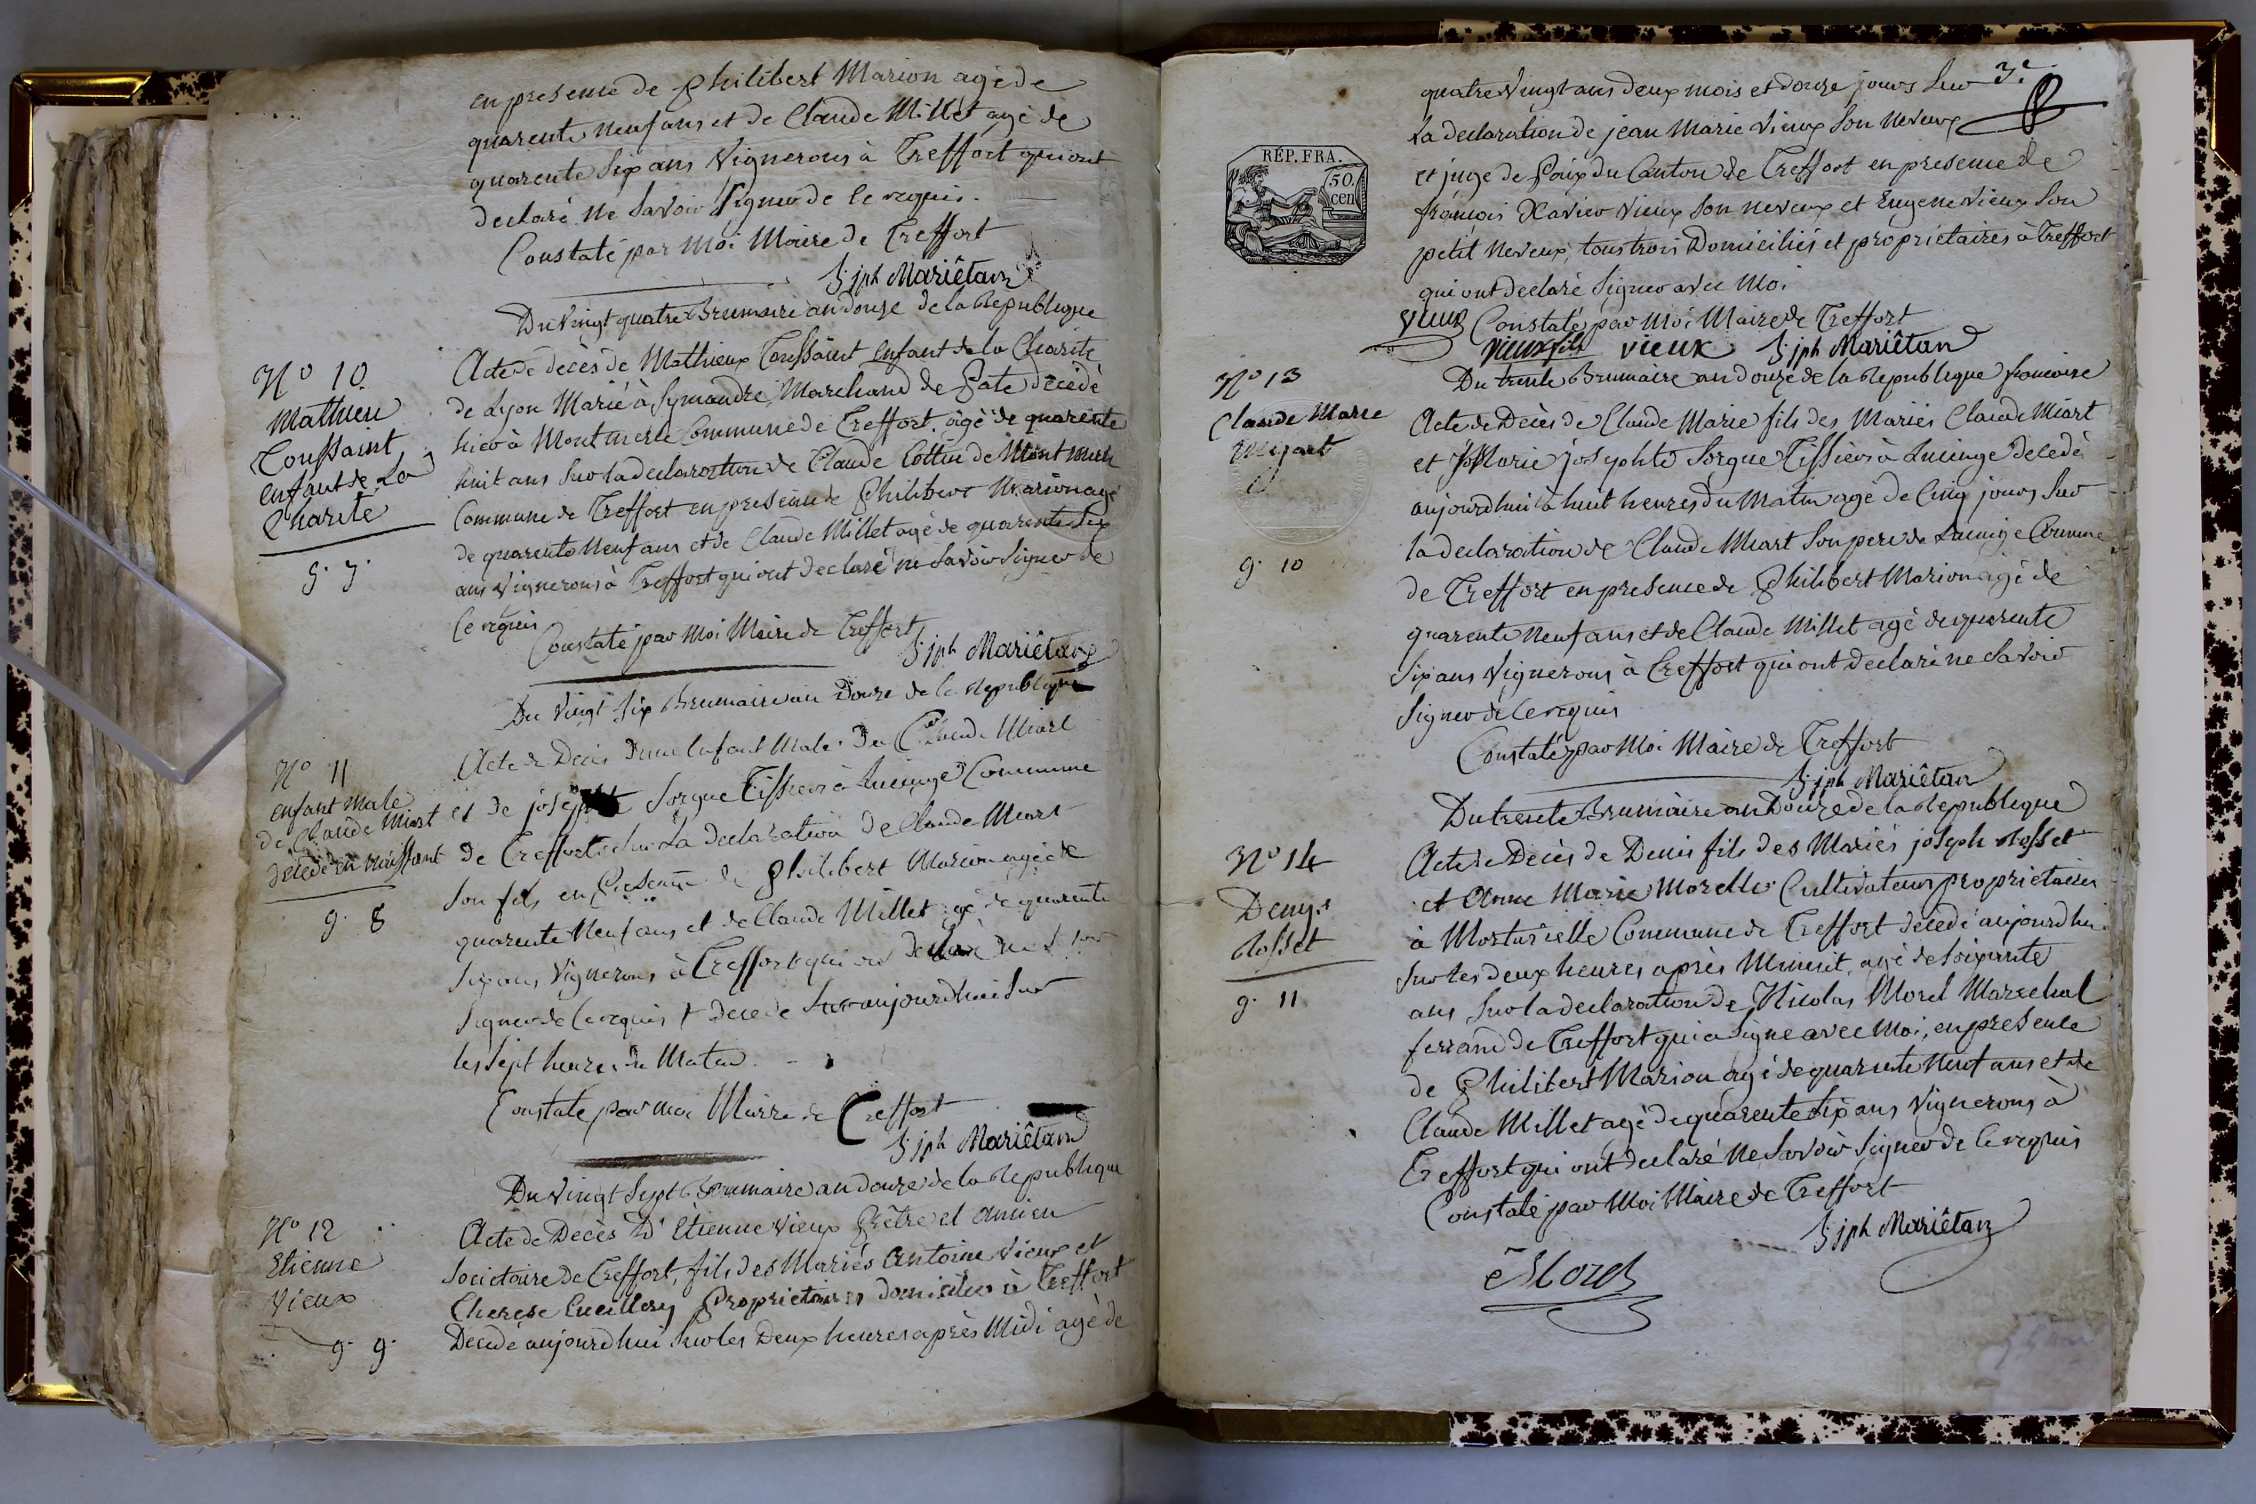 en presence de Philibert Marion agé de
quarente Neuf ans et de Claude Millet agé de
quarente Six ans Vignerons à Treffort qui ont
declaré ne Savoir Signer de ce requis.
Constaté par Moi Maire de Treffort
Jph Mariêtan
Du Vingt quatre Brumaire an douze de la Republique
N° 10
Mathieu
Toussaint
enfant de La
Charité
g. 7.
Acte de décès de Mathieux Toussaint enfant de la Charité
de Lyon Marié à Symandre, Marchand de Pate décédé
hier à Montmerle Commune de Treffort. agé de quarente
huit ans Sur la declaration de Claude Cottin de Mont merle
Commune de Treffort en presence de Philibert Marion agé
de quarente Neuf ans et de Claude Millet agé de quarente Six
ans Vignerons à Treffort qui ont declaré ne Savoir Signer de
ce requis
Constaté par Moi Maire de Treffort
Jph Mariêtan
Du Vingt Six Brumaire an Douze de la Republique
N° 11
enfant male
de Claude Miart
décédé en Naissant
g. 8
Acte de Décès d'un Enfant Male De Claude Miart
et de josephte Sorgue Tissiers à Lucinge Commune
de Treffort Sur La declaration de Claude Miart
Son fils en Presence de Philibert Marion agé de
quarente Neuf ans et de Claude Millet agé de quarente
Six ans Vignerons à Treffort qui ont declaré ne Savoir
Signer de ce requis & decedé aujourdhui Sur
les Sept heures du Matin
Constaté par moi Maire de Treffort
Jph Mariêtan
Du Vingt Sept Brumaire an douze de la Republique
N° 12
Etienne
Vieux
g. 9.
Acte de Décès D'Etienne Vieux Prêtre et ancien
Societaire de Treffort, fils des Mariés Antoine Vieux et
Therese Cueillery Proprietaires domiciliés à Treffort
Decedé aujourdhui Sur les Deux heures après Midi agé de
3.e
quatre Vingt ans deux mois et douze jours Sur
la declaration de jean Marie Vieux Son Neveux
et juge de Paix du Canton de Treffort en presence de
françois Xavier Vieux Son neveux et Eugene Vieux Son
petit Neveux, tous trois Domiciliés et proprietaires à Treffort
qui ont declaré Signer avec Moi
RÉP. FRA.
50.
cen
Vieux Constaté par Moi Maire de Treffort
Vieux fils Vieux Jph Mariêtan
Du trente Brumaire an douze de la Republique francoise
N° 13
Claude Marie
g. 10
Acte de Décès de Claude Marie fils des Mariés Claude Miart
et Marie josephte Sorgue Tissiers à Lucinge Decedé
aujourdhui à huit heures du Matin agé de Cinq jours Sur
la declaration de Claude Miart Son pere de Lucinge Commune
de Treffort en presence de Philibert Marion agé de
quarente Neuf ans et de Claude Millet agé de quarente
Six ans Vignerons à Treffort qui ont declaré ne Savoir
Signer de ce requis
Constaté par Moi Maire de Treffort
Jph Mariêtan
Du trente Brumaire an Douze de la Republique
N° 14
Denys
Rosset
g. 11
Acte de Décès de Denis fils des Mariés joseph Rosset
et Anne Marie Morelle Cultivateurs proprietaires
à Commune de Treffort decedé aujourdhui
Sur les deux heures après Minuit, agé de Soixante
ans Sur la declaration de Nicolas Morel Marechal
ferrand de Treffort qui a Signé avec Moi, en presence
de Philibert Marion agé de quarente Neuf ans et de
Claude Millet agé de quarente Six ans Vignerons à
Treffort qui ont declaré ne Savoir Signer de ce requis
Constaté par Moi Maire de Treffort
Jph Mariêtan
Morel